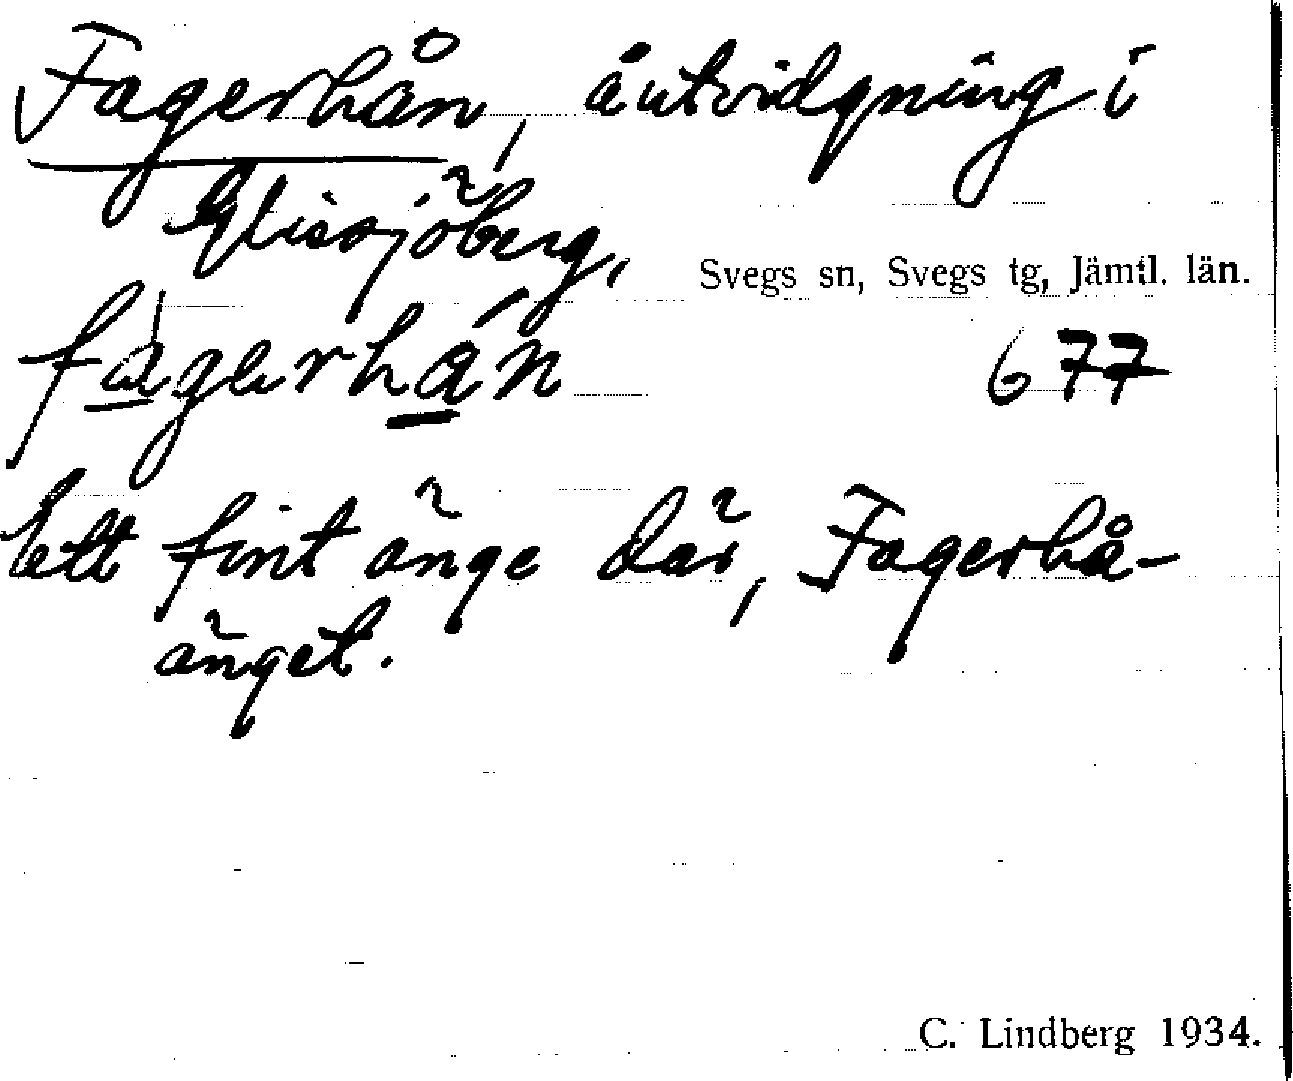 Fagerhån, åutvidgning i
Glissjöberg,
Svegs sn, Svegs tg, Jämtl. län.
fagerhán
677
Ett fint änge där, Fagerhå-
änget.
C. Lindberg 1934.